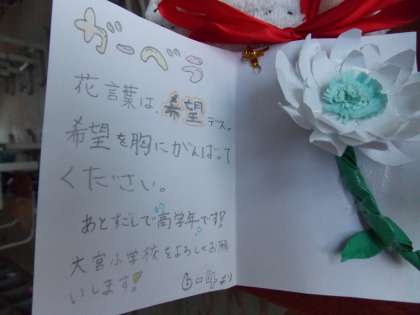 ガーベラ
花言葉は、希望デス。
希望を胸にがんばって
ください。
あと少しで高学年です!
大宮小学校をよろしくお願
いします!
より